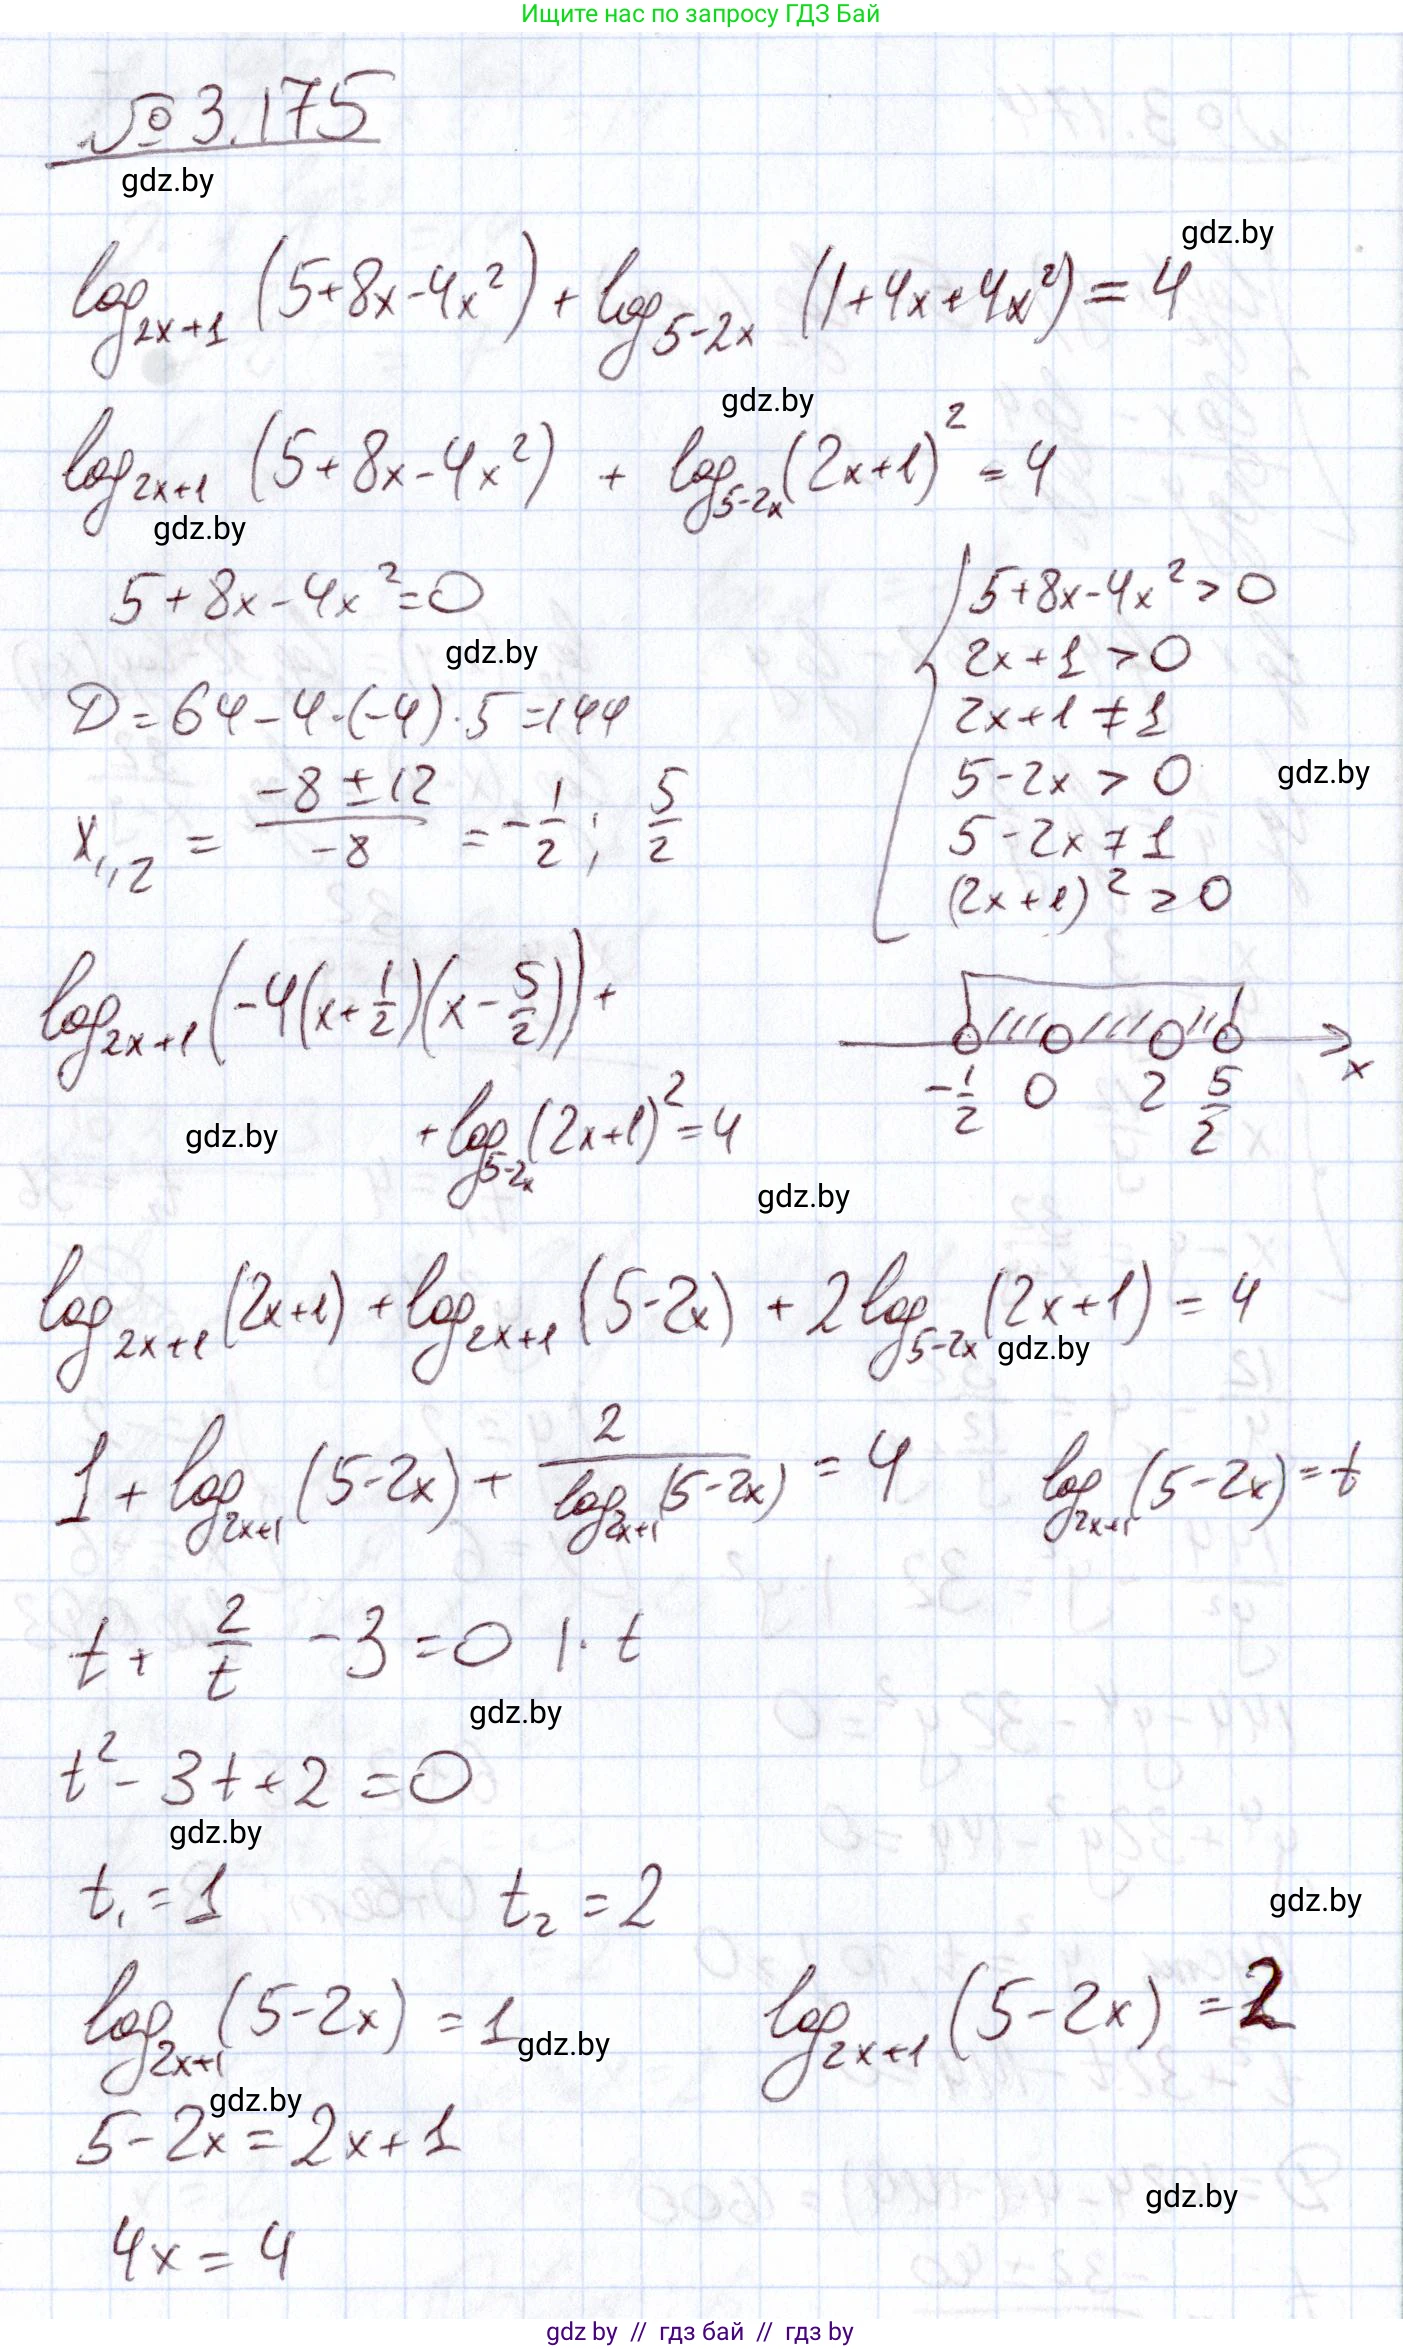 Ищите нас по запросу ГДЗ Бай
№ 3.175
gdz.by
gdz.by
log_{2x+1} (5+8x-4x²) + log_{5-2x} (1+4x+4x²) = 4
gdz.by
log_{2x+1} (5+8x-4x²) + log_{5-2x} (2x+1)² = 4
gdz.by
5+8x-4x²=0
gdz.by
D = 64-4·(-4)·5=144
x_{1,2} = (-8±12)/(-8) = -1/2; 5/2
{ 5+8x-4x² > 0
2x+1 > 0
2x+1 ≠ 1
5-2x > 0
gdz.by
5-2x ≠ 1
(2x+1)² > 0
log_{2x+1} (-4(x+1/2)(x-5/2)) +
+ log_{5-2x} (2x+1)² = 4
-1/2 0 2 5/2 x
gdz.by
gdz.by
log_{2x+1} (2x+1) + log_{2x+1} (5-2x) + 2 log_{5-2x} (2x+1) = 4
gdz.by
1 + log_{2x+1} (5-2x) + 2/(log_{2x+1} (5-2x)) = 4 log_{2x+1} (5-2x) = t
t + 2/t - 3 = 0 |· t
gdz.by
t² - 3t + 2 = 0
gdz.by
t₁ = 1 t₂ = 2
gdz.by
log_{2x+1} (5-2x) = 1 log_{2x+1} (5-2x) = 2
gdz.by
gdz.by
5-2x = 2x+1
gdz.by
4x = 4
gdz by // гдз бай // гдз by